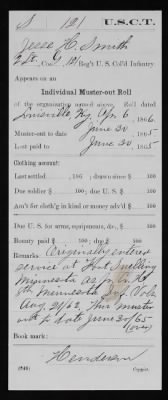 S 121 U.S.C.T.
Jesse H. Smith
2 Lt., Co. G, 121 Reg't U. S. Col'd Infantry.
Appears on an
Individual Muster-out Roll
of the organization named above. Roll dated
Louisville, Ky. Apr. 6, 1866.
Muster-out to date June 30, 1865.
Last paid to June 30, 1865.
Clothing account:
Last settled , 186 ; drawn since $ 100
Due soldier $ 100; due U. S. $ 100
Am't for cloth'g in kind or money adv'd $ 100
Due U. S. for arms, equipments, &c., $ 100
Bounty paid $ 100; due $ 100
Remarks: Originally entered
service at Fort Snelling
Minnesota as
Minnesota Inf. Vols
Aug. 21/62. This muster
out to date June 30/65
(over)
Book mark:
Henderson
(946) Copyist.